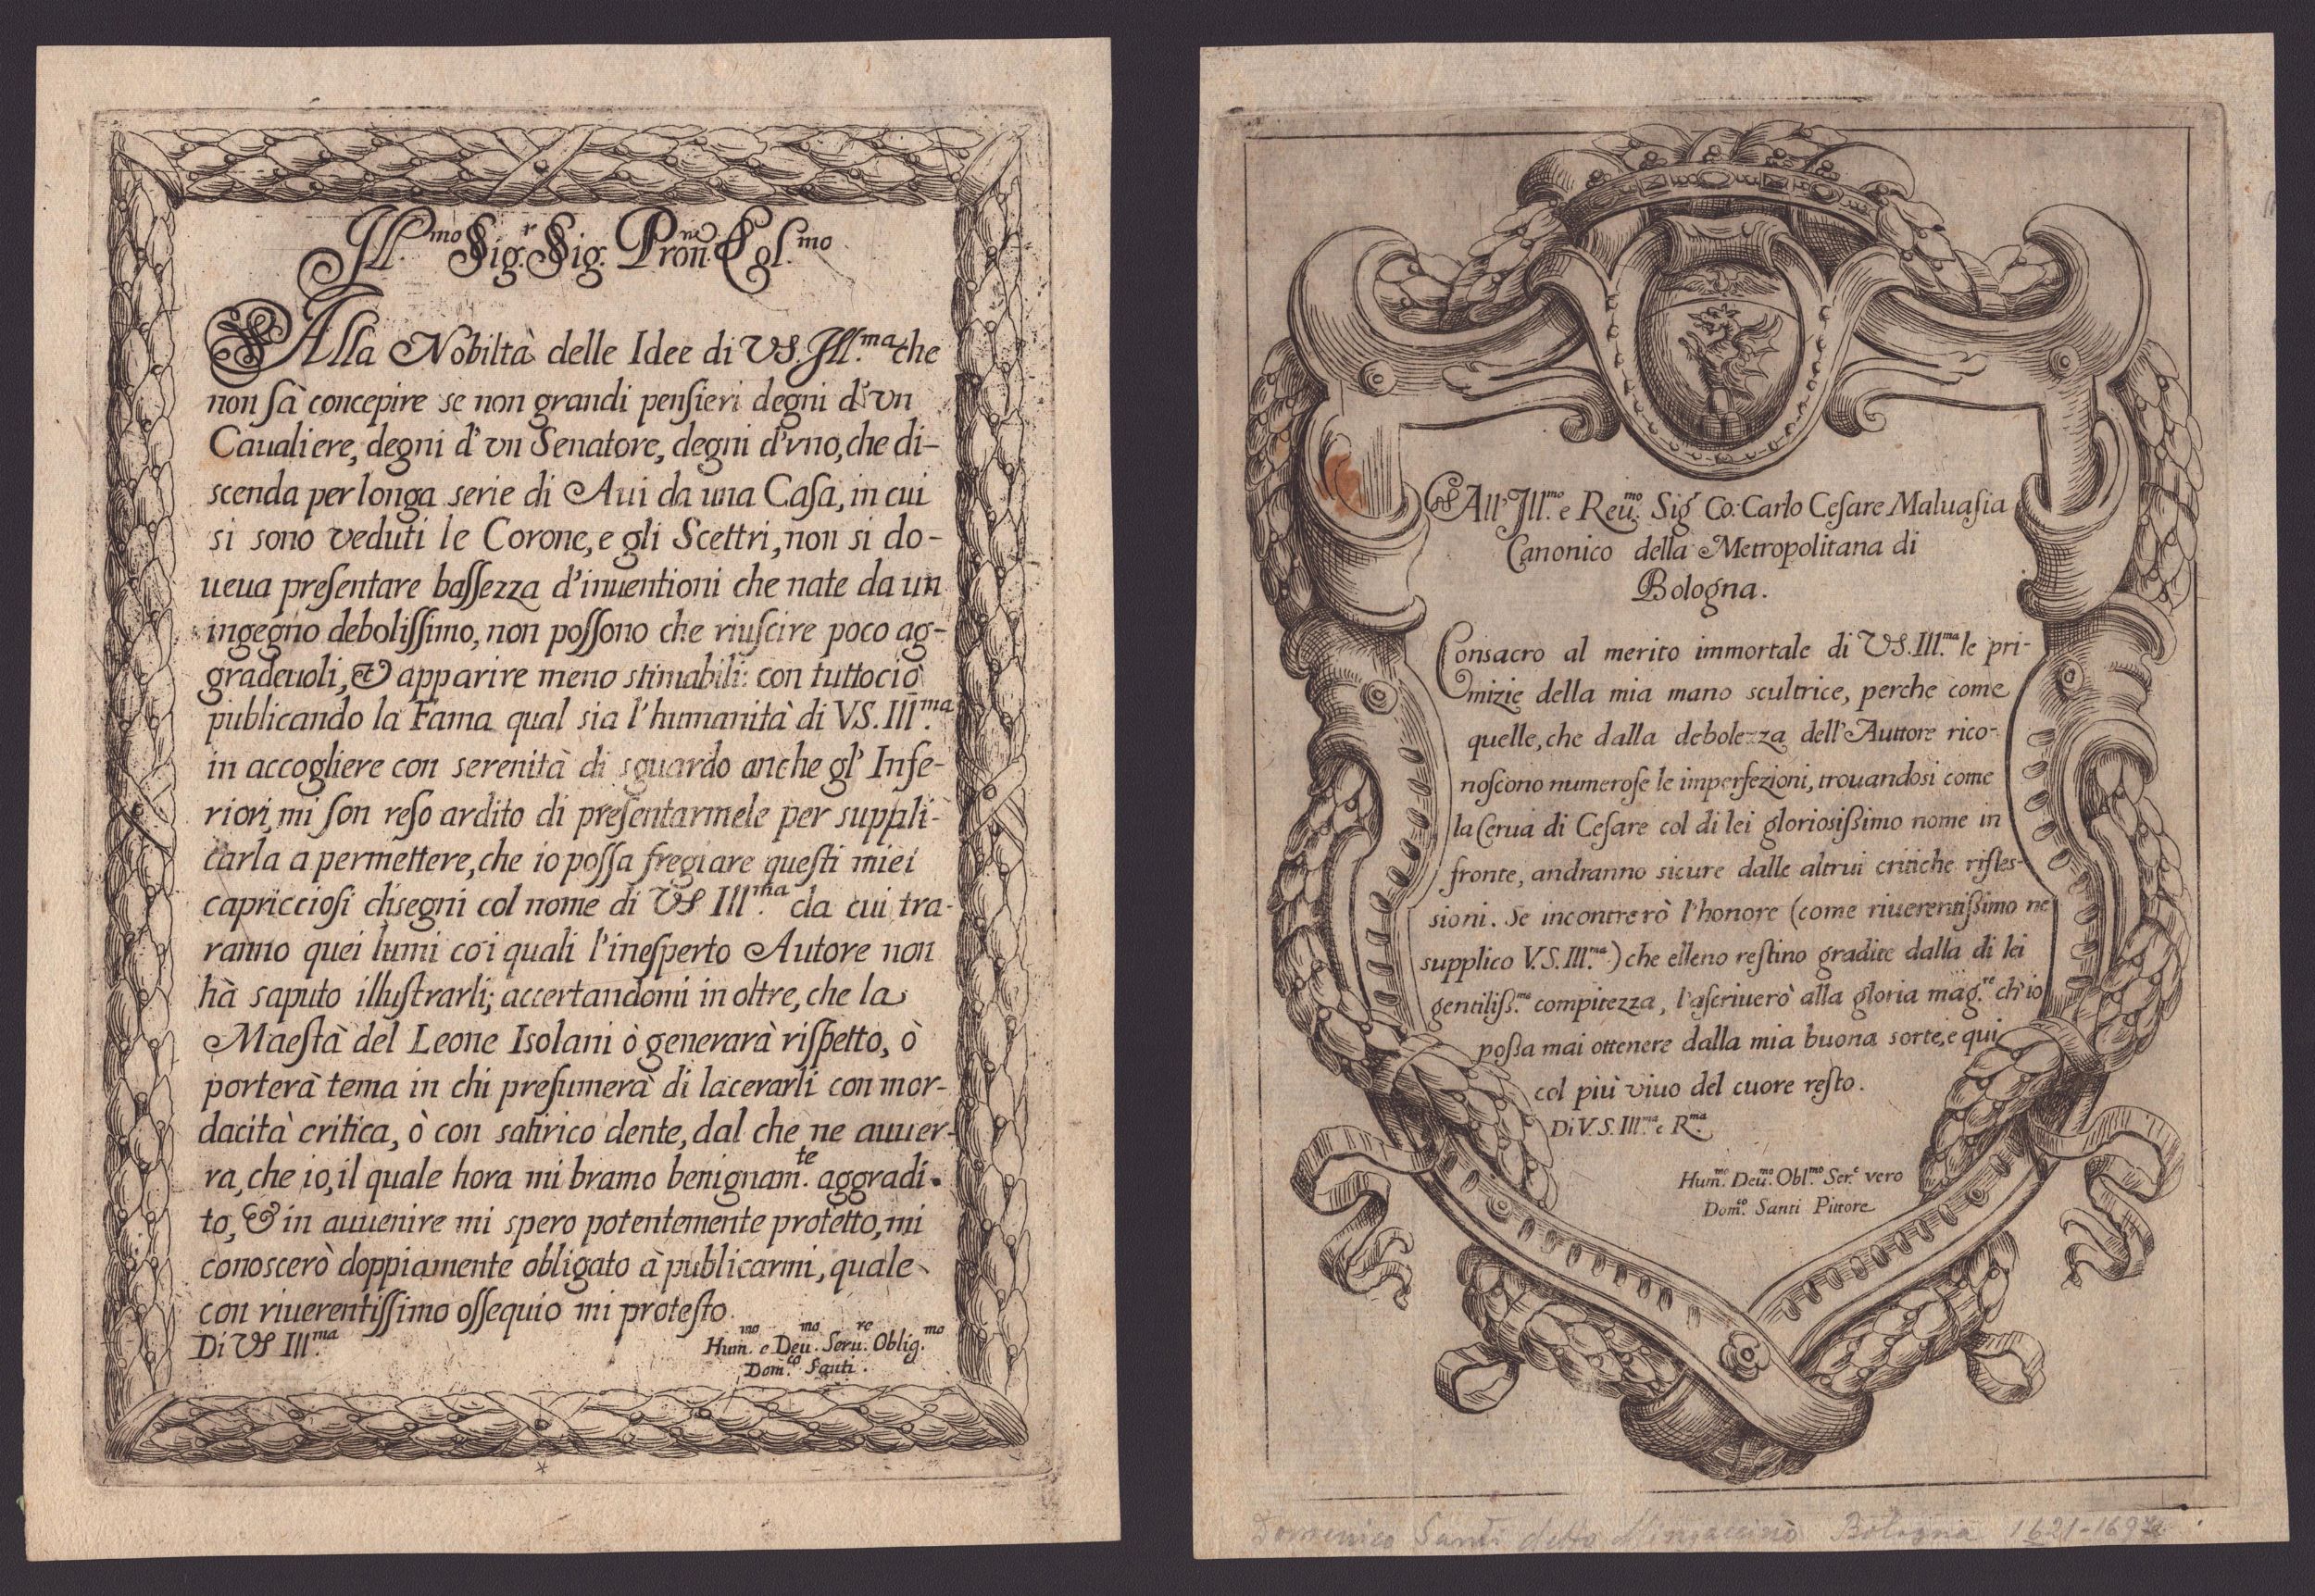 Ill.mo Sig.r Sig. Pron.ne Col.mo
Alla Nobiltà delle Idee di VS. Ill.ma che
non sà concepire se non grandi pensieri degni d'vn
Caualiere, degni d'vn Senatore, degni d'vno, che di-
scenda per longa serie di Aui da una Casa, in cui
si sono veduti le Corone, e gli Scettri, non si do-
ueua presentare bassezza d'inuentioni che nate da un
ingegno debolissimo, non possono che riuscire poco ag-
gradeuoli, & apparire meno stimabili: con tuttociò
publicando la Fama qual sia l'humanità di V.S. Ill.ma
in accogliere con serenità di sguardo anche gl' Infe-
riori, mi son reso ardito di presentarmele per suppli-
carla a permettere, che io possa fregiare questi miei
capricciosi disegni col nome di VS Ill.ma da cui tra-
ranno quei lumi coi quali l'inesperto Autore non
hà saputo illustrarli; accertandomi in oltre, che la
Maestà del Leone Isolani ò generarà rispetto, ò
porterà tema in chi presumerà di lacerarli con mor-
dacità critica, ò con satirico dente, dal che ne auuer-
ra, che io, il quale hora mi bramo benignam.te aggradi-
to, & in auuenire mi spero potentemente protetto, mi
conoscerò doppiamente obligato à publicarmi, quale
con riuerentissimo ossequio mi protesto.
Di VS Ill.ma
Hum.mo e Deu.mo Seru.re Oblig.mo
Dom.co Santi.
All' Ill.mo e Reu.mo Sig.r Co: Carlo Cesare Maluasia
Canonico della Metropolitana di
Bologna.
Consacro al merito immortale di VS. Ill.ma le pri-
mizie della mia mano scultrice, perche come
quelle, che dalla debolezza dell'Auttore rico-
noscono numerose le imperfezioni, trouandosi come
la Cerua di Cesare col di lei gloriosissimo nome in
fronte, andranno sicure dalle altrui critiche rifles-
sioni. Se incontrerò l'honore (come riuerentissimo ne
supplico V.S. Ill.ma) che elleno restino gradite dalla di lei
gentiliss.ma compitezza, l'ascriuerò alla gloria mag.re ch'io
possa mai ottenere dalla mia buona sorte, e qui
col più viuo del cuore resto.
Di V.S. Ill.ma e R.ma
Hum.mo Deu.mo Obl.mo Ser.e vero
Dom.co Santi Pittore
Domenico Santi detto Mingaccino Bologna 1621-1694